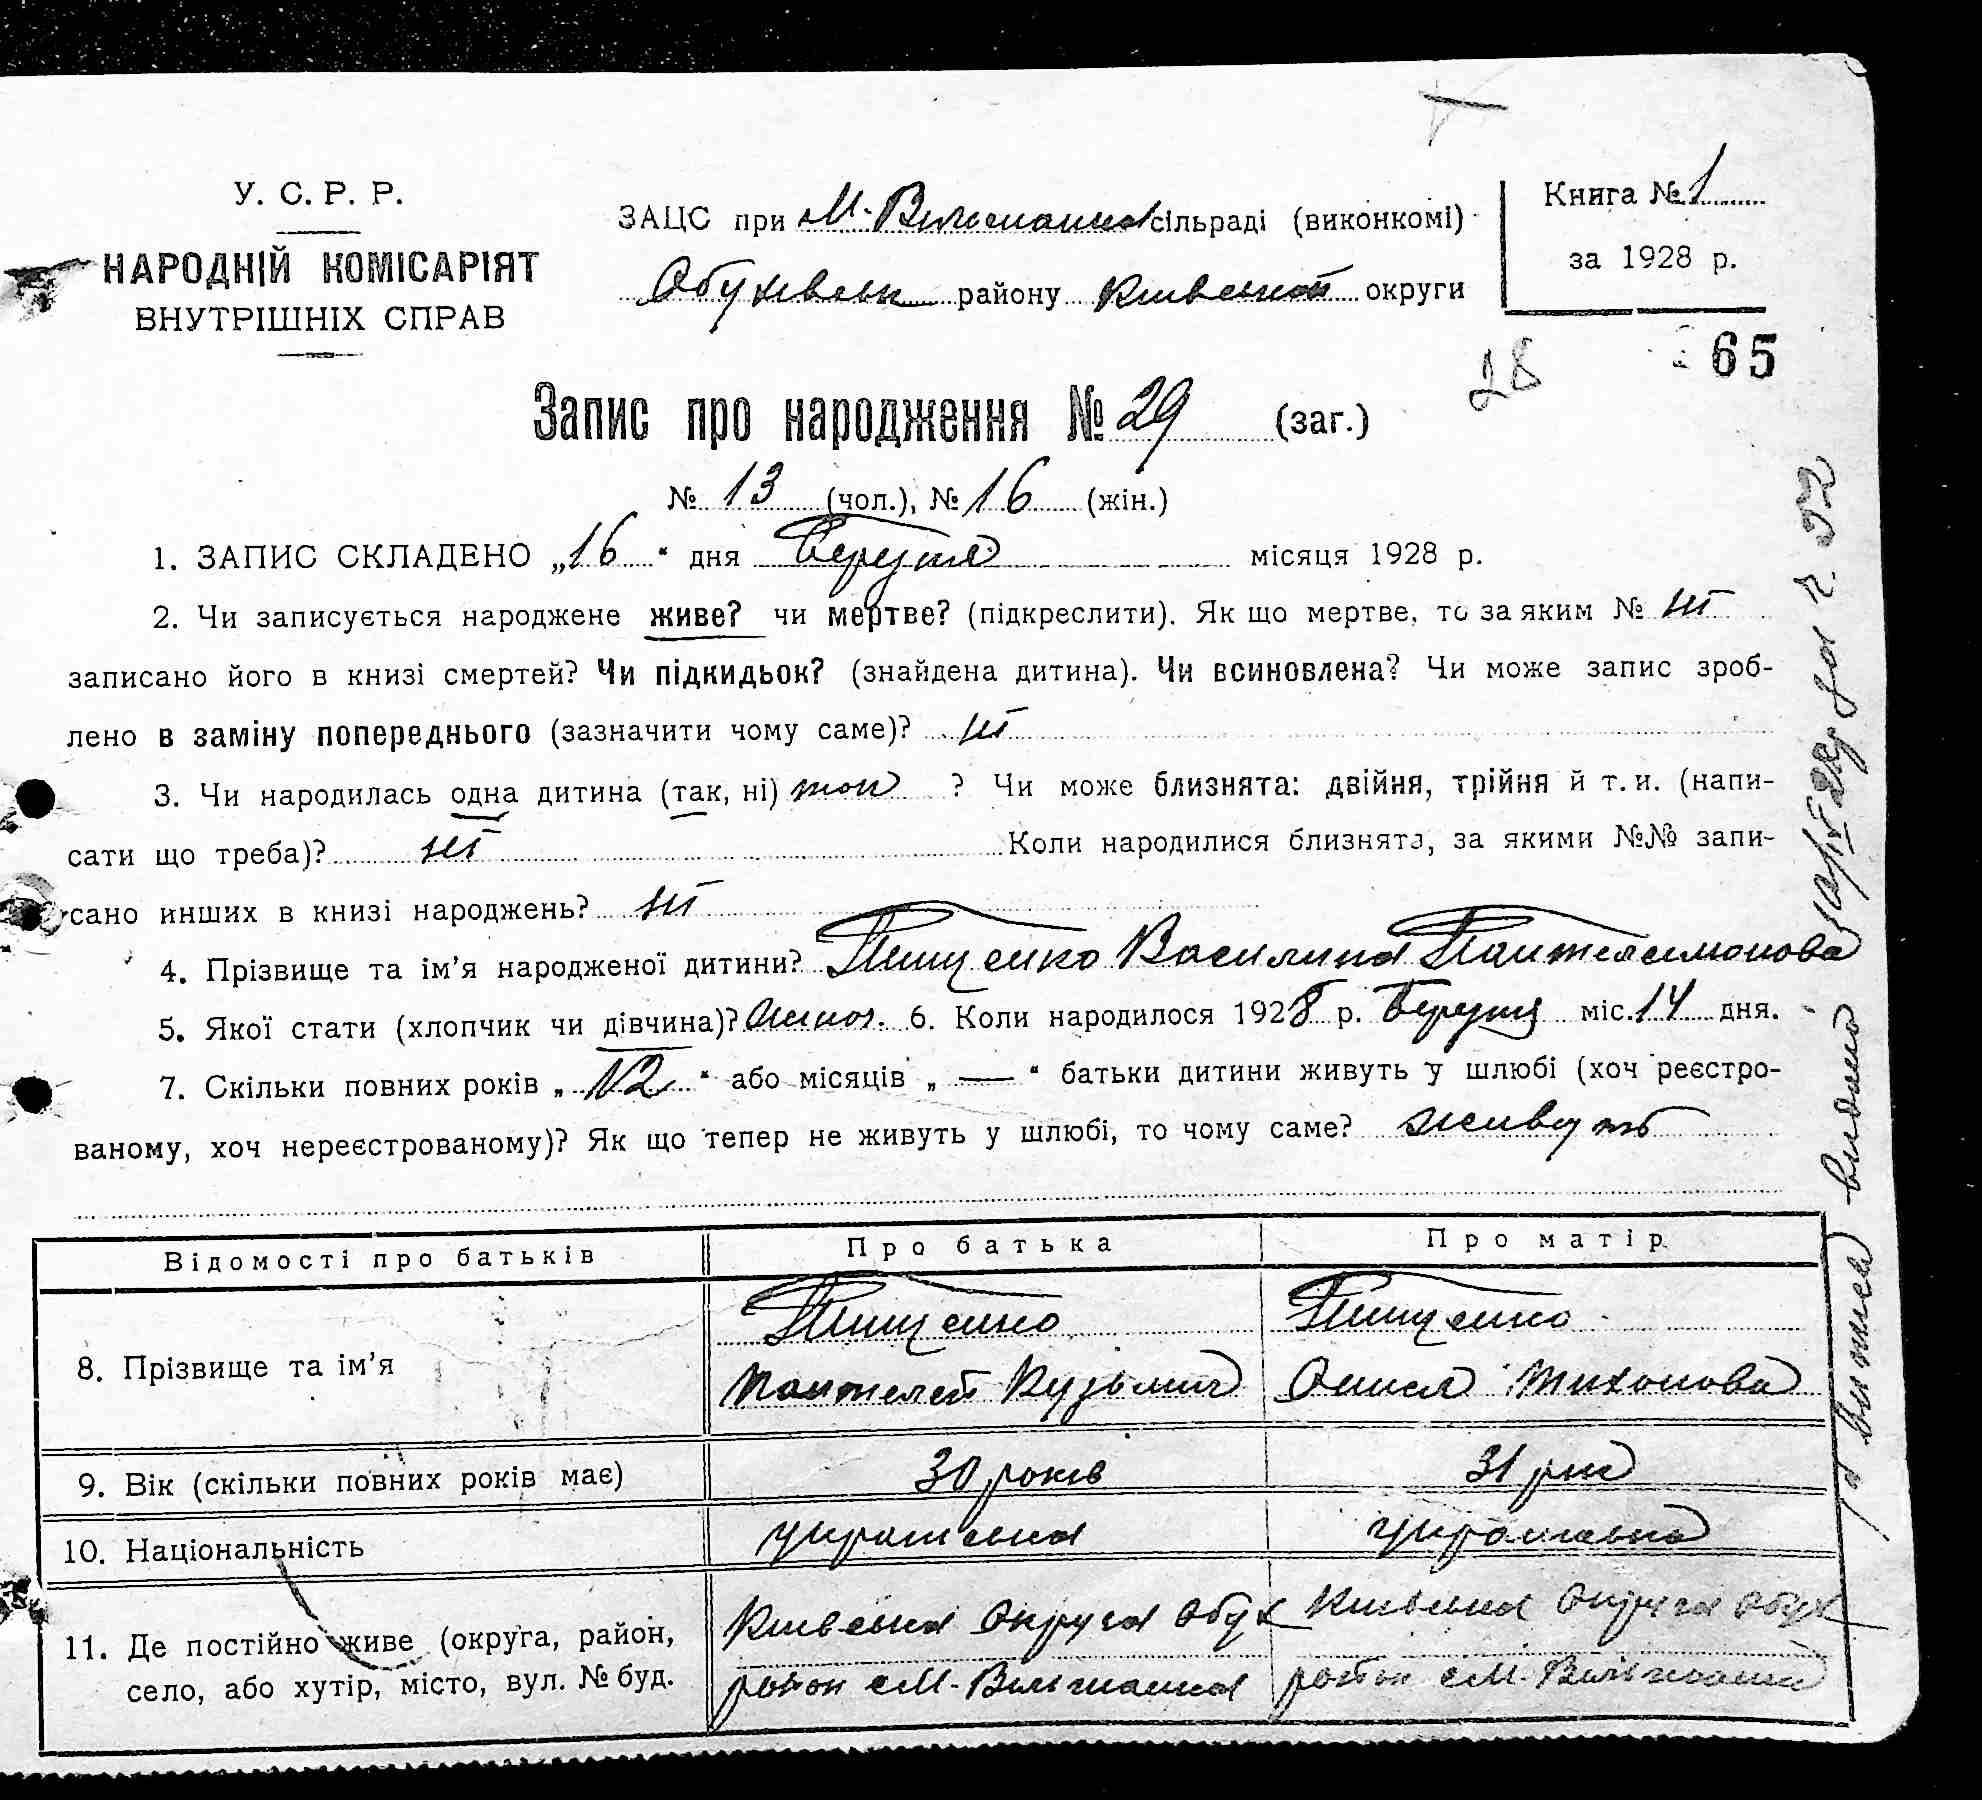 У. С. Р. Р.
НАРОДНІЙ КОМІСАРІЯТ
ВНУТРІШНІХ СПРАВ
ЗАЦС при М.-Вільшанка сільраді (виконкомі)
Обухівськ району Київської округи
Книга № 1
за 1928 р.
28
65
Запис про народження № 29 (заг.)
№ 13 (чол.), № 16 (жін.)
1. ЗАПИС СКЛАДЕНО „16“ дня Березня місяця 1928 р.
2. Чи записується народжене живе? чи мертве? (підкреслити). Як що мертве, то за яким № ні
записано його в книзі смертей? Чи підкидьок? (знайдена дитина). Чи всиновлена? Чи може запис зроб-
лено в заміну попереднього (зазначити чому саме)? ні
3. Чи народилась одна дитина (так, ні) так ? Чи може близнята: двійня, трійня й т. и. (напи-
сати що треба)? ні Коли народилися близнята, за якими №№ запи-
сано инших в книзі народжень? ні
4. Прізвище та ім’я народженої дитини? Тищенко Василина Пантелеимонова
5. Якої стати (хлопчик чи дівчина)? 6. Коли народилося 1928 р. Березня міс. 14 дня.
7. Скільки повних років „12“ або місяців „—“ батьки дитини живуть у шлюбі (хоч реєстро-
ваному, хоч нереєстрованому)? Як що тепер не живуть у шлюбі, то чому саме? живуть
Відомості про батьків Про батька Про матір
8. Прізвище та ім’я Тищенко Тищенко
Пантелей Кузьмич Тихонова
9. Вік (скільки повних років має) 30 років 31 рік
10. Національність українська українська
11. Де постійно живе (округа, район, Київська округа Обух Київська округа Обух
село, або хутір, місто, вул. № буд. район с М.-Вільшанка район с М.-Вільшанка